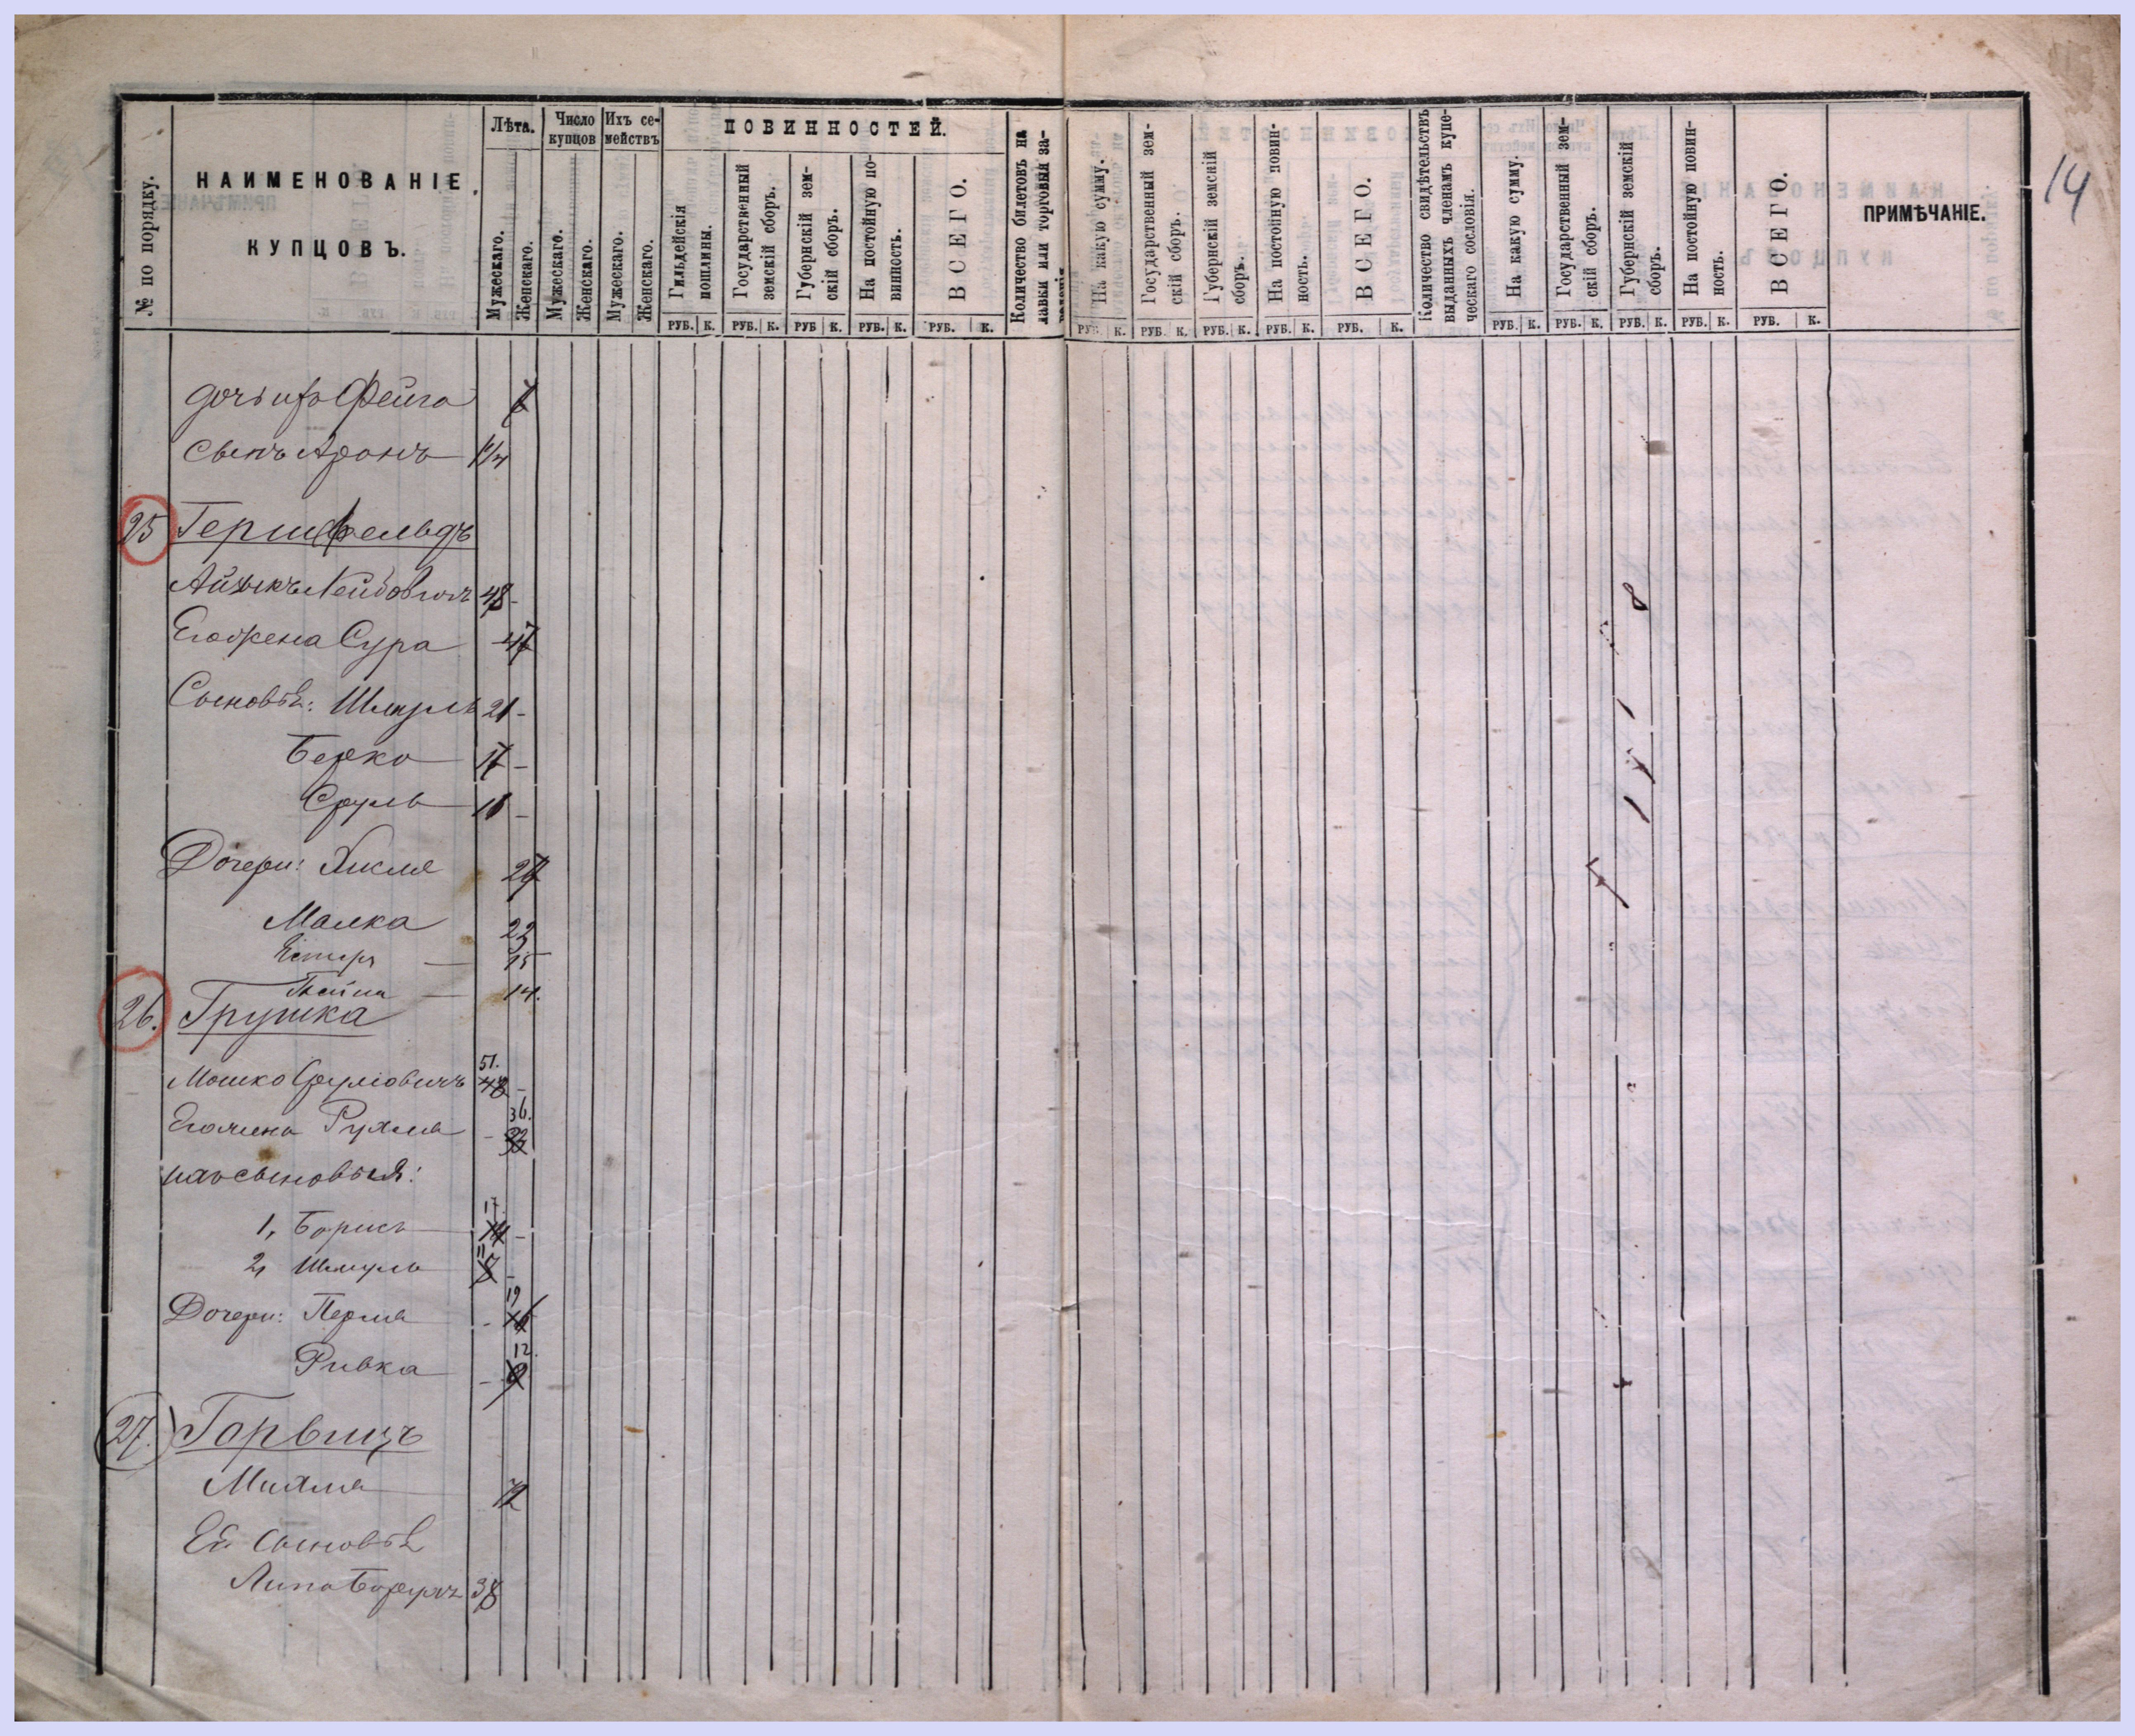 14
№ по порядку.
НАИМЕНОВАНІЕ
КУПЦОВЪ.
Лѣта.
Мужескаго.
Женскаго.
Число купцов
Мужескаго.
Женскаго.
Ихъ се-
мействъ
Мужескаго.
Женскаго.
ПОВИННОСТЕЙ.
Гильдейскія
пошлины.
Государственный
земскій сборъ.
Губернскій зем-
скій сборъ.
На постойную по-
винность.
ВСЕГО.
Количество билетовъ на
лавки или торговыя за-
На какую сумму.
Государственный зем-
скій сборъ.
Губернскій земскій
сборъ.
На постойную повин-
ность.
ВСЕГО.
Количество свидѣтельствъ
выданныхъ членамъ купе-
ческаго сословія.
На какую сумму.
Государственный зем-
скій сборъ.
Губернскій земскій
сборъ.
На постойную повин-
ность.
ВСЕГО.
ПРИМѢЧАНІЕ.
РУБ. К. РУБ. К. РУБ К. РУБ. К. РУБ. К. РУБ. К. РУБ. К. РУБ. К. РУБ. К. РУБ. К. РУБ. К. РУБ. К. РУБ. К. РУБ. К. РУБ. К.
дочь ихъ Фейга
Сынъ Аронъ
25 Гершфельдъ
Айзыкъ Лейбовичъ 48 -
Его жена Сура - 47
Сыновья: Шмуль 21 -
Берко 17 -
Сруль -
Дочери: Хикля 27
Малка 22
Естеръ — 15
— 14.
26. Грушка
Мошко Срулiовичъ 51. 48 -
Его жена Рухля - 36. 32
ихъ сыновья:
1, Борисъ 17 14 -
2, Шмуль 11 8 -
Дочери: Перля - 19 16
Ривка - 12. 9
27. Горвицъ
Михля 72
Ея Сыновья
Липа Борухъ 38